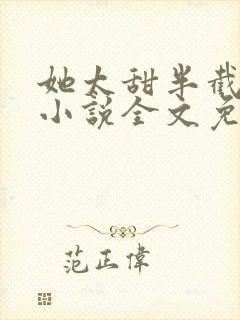 她太甜半截
小說全文免
范正偉